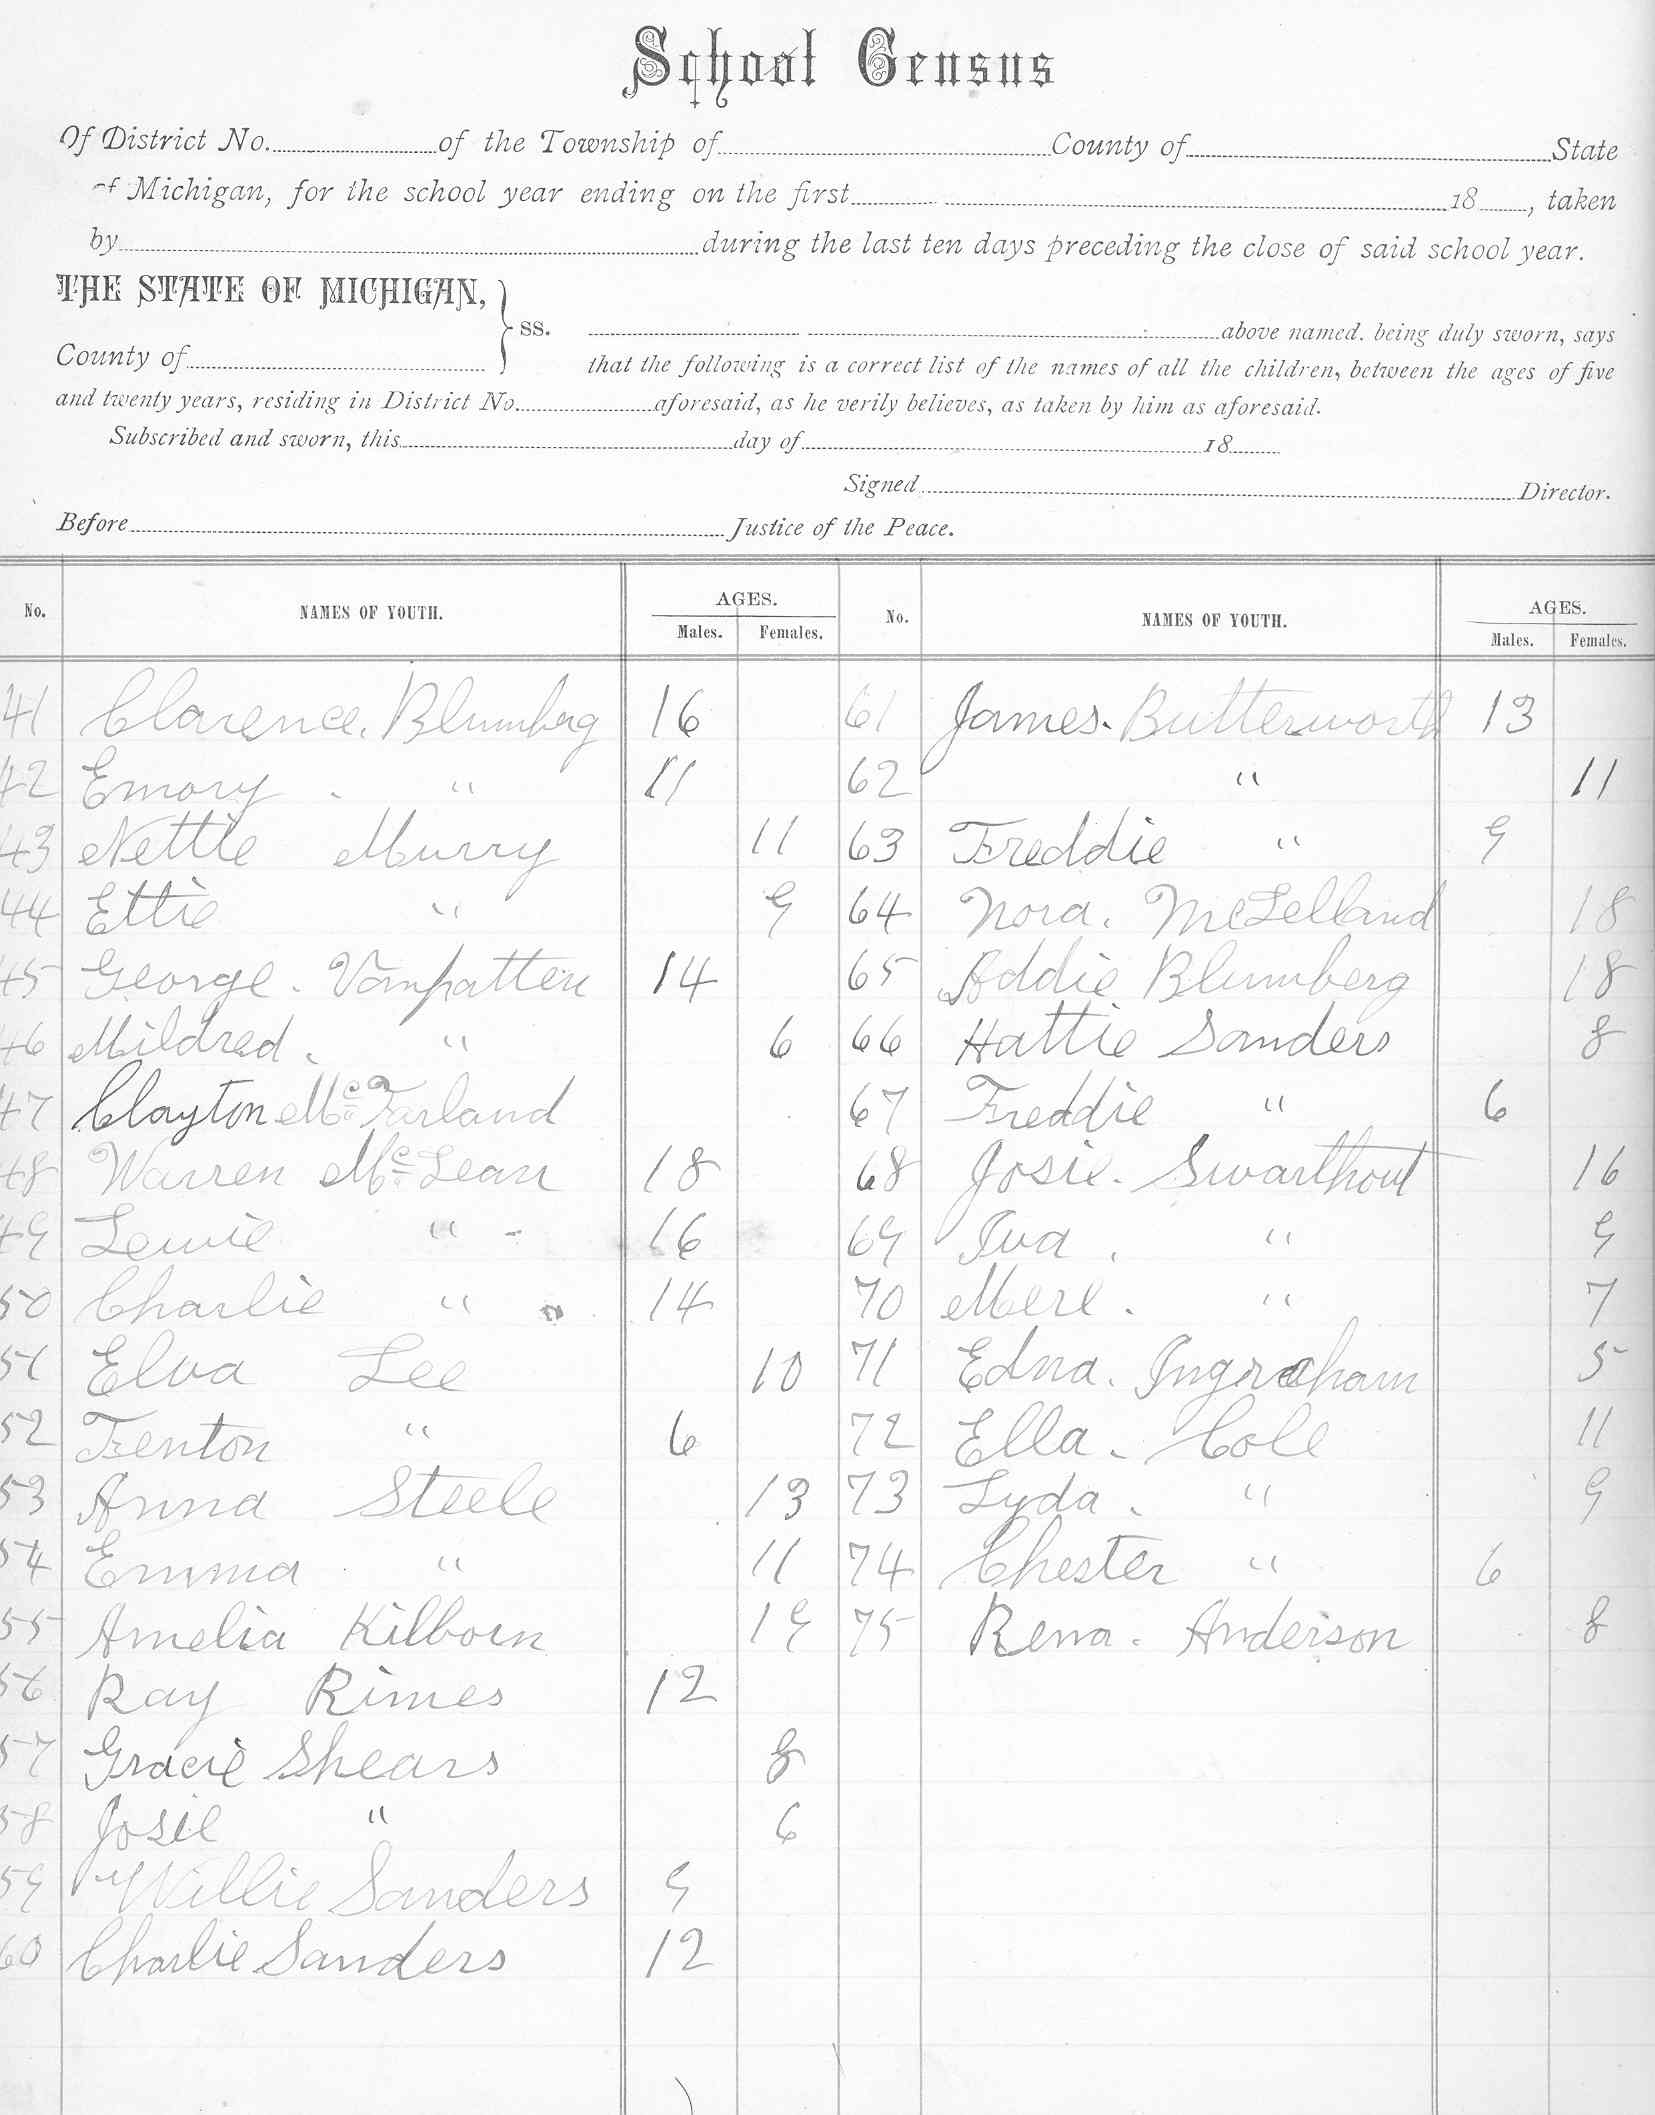 School Census
Of District No. of the Township of County of State
of Michigan, for the school year ending on the first 18 , taken
by during the last ten days preceding the close of said school year.
THE STATE OF MICHIGAN, } ss.
above named. being duly sworn, says
County of
that the following is a correct list of the names of all the children, between the ages of five
and twenty years, residing in District No. aforesaid, as he verily believes, as taken by him as aforesaid.
Subscribed and sworn, this day of 18
Signed Director.
Before Justice of the Peace.
No. NAMES OF YOUTH. AGES. Males. Females.
41 Clarence. Blumberg 16
42 Emory . " 11
43 Nettie Murry 11
44 Ettie " 9
45 George. Vanpatten 14
46 Mildred. " 6
47 Clayton McFarland
48 Warren McLean 18
49 Lewie " - 16
50 Charlie " 14
51 Elva Lee 10
52 Fenton " 6
53 Anna Steele 13
54 Emma " 11
55 Amelia Kilborn 19
56 Ray Rimes 12
57 Gracie Shears 8
58 Josie " 6
59 Willie Sanders 9
60 Charlie Sanders 12
No. NAMES OF YOUTH. AGES. Males. Females.
61 James. Butterworth 13
62 " 11
63 Freddie " 9
64 Nora. McLelland 18
65 Addie Blumberg 18
66 Hattie Sanders 8
67 Freddie " 6
68 Josie. Swarthout 16
69 Iva . " 9
70 Merl . " 7
71 Edna. Ingraham 5
72 Ella. Cole 11
73 Lyda . " 9
74 Chester " 6
75 Rena. Anderson 8